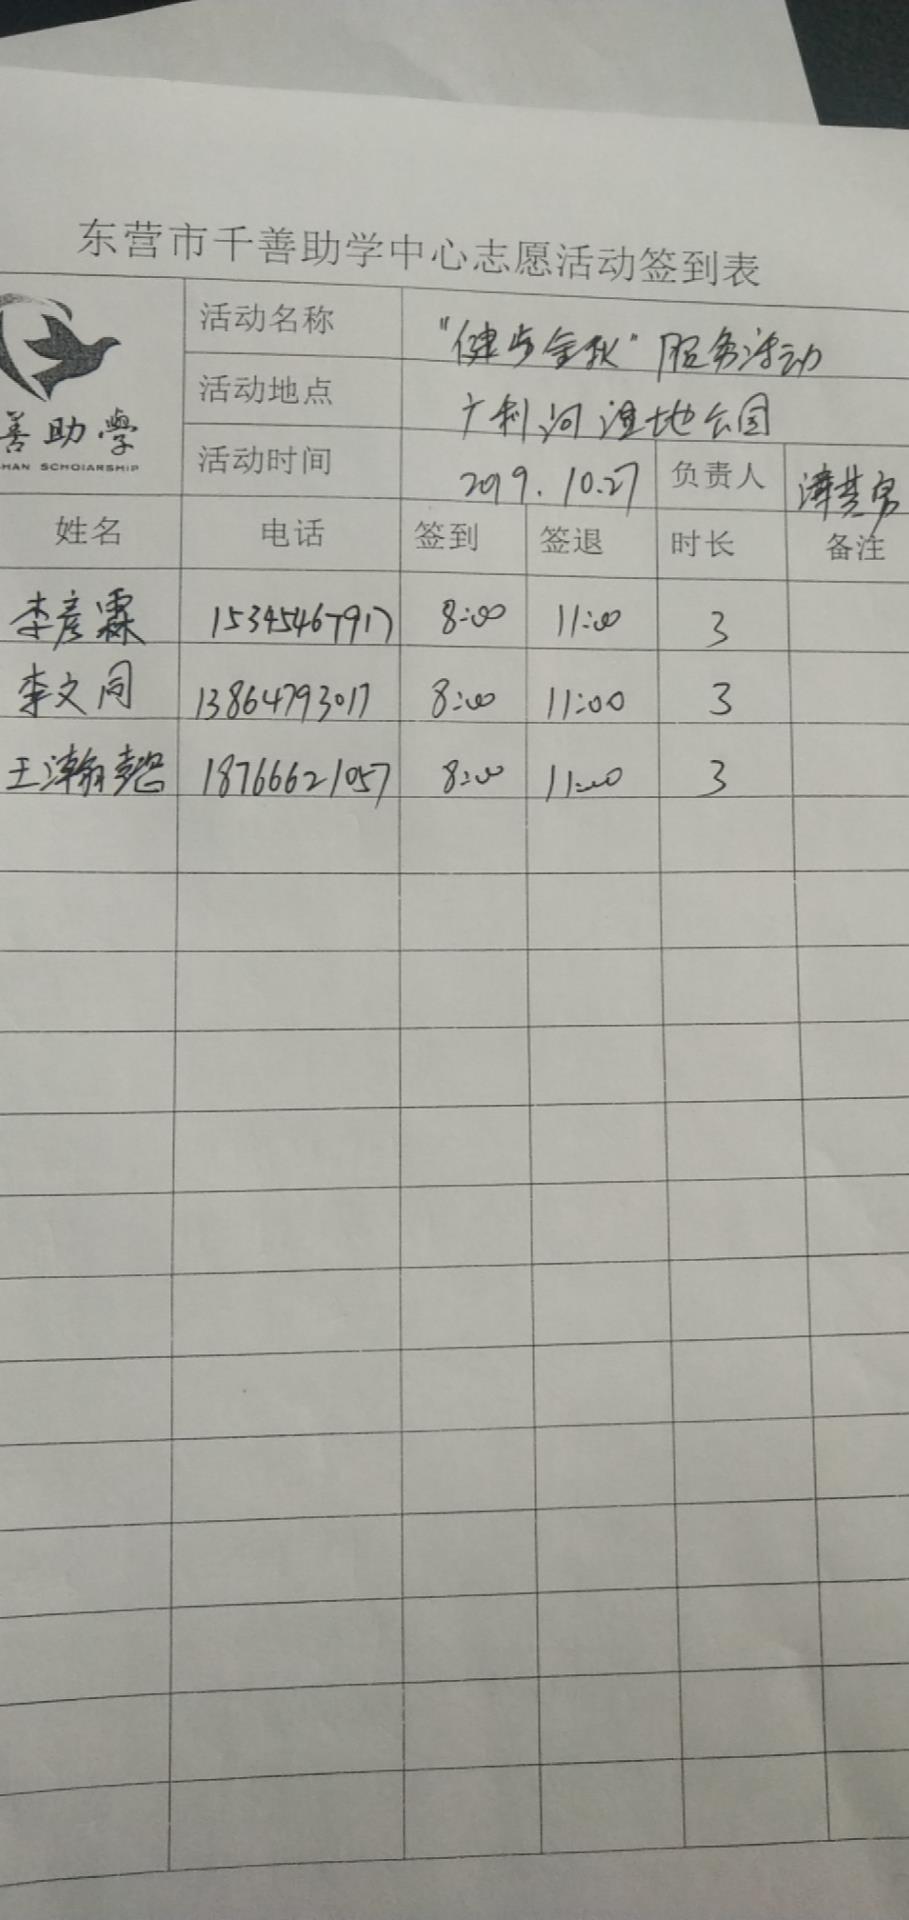 东营市千善助学中心志愿活动签到表
善助學
HAN SCHOlARSHIP
活动名称 "健步金秋"服务活动
活动地点 广利河湿地公园
活动时间 2019.10.27 负责人
姓名 电话 签到 签退 时长 备注
李彦霖 15345467917 8:00 11:00 3
李文同 13864793017 8:00 11:00 3
王瀚懿 18766621057 8:00 11:00 3